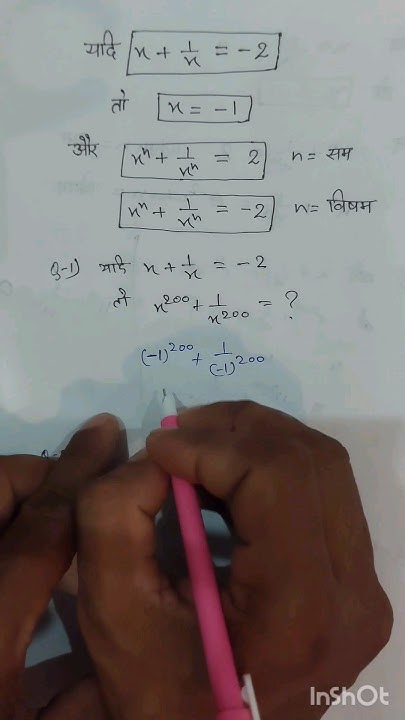 यदि x + 1/x = -2
तो x = -1
और xⁿ + 1/xⁿ = 2 n = सम
xⁿ + 1/xⁿ = -2 n = विषम
Q-1) यदि x + 1/x = -2
तो x²⁰⁰ + 1/x²⁰⁰ = ?
(-1)²⁰⁰ + 1/(-1)²⁰⁰
InShOt